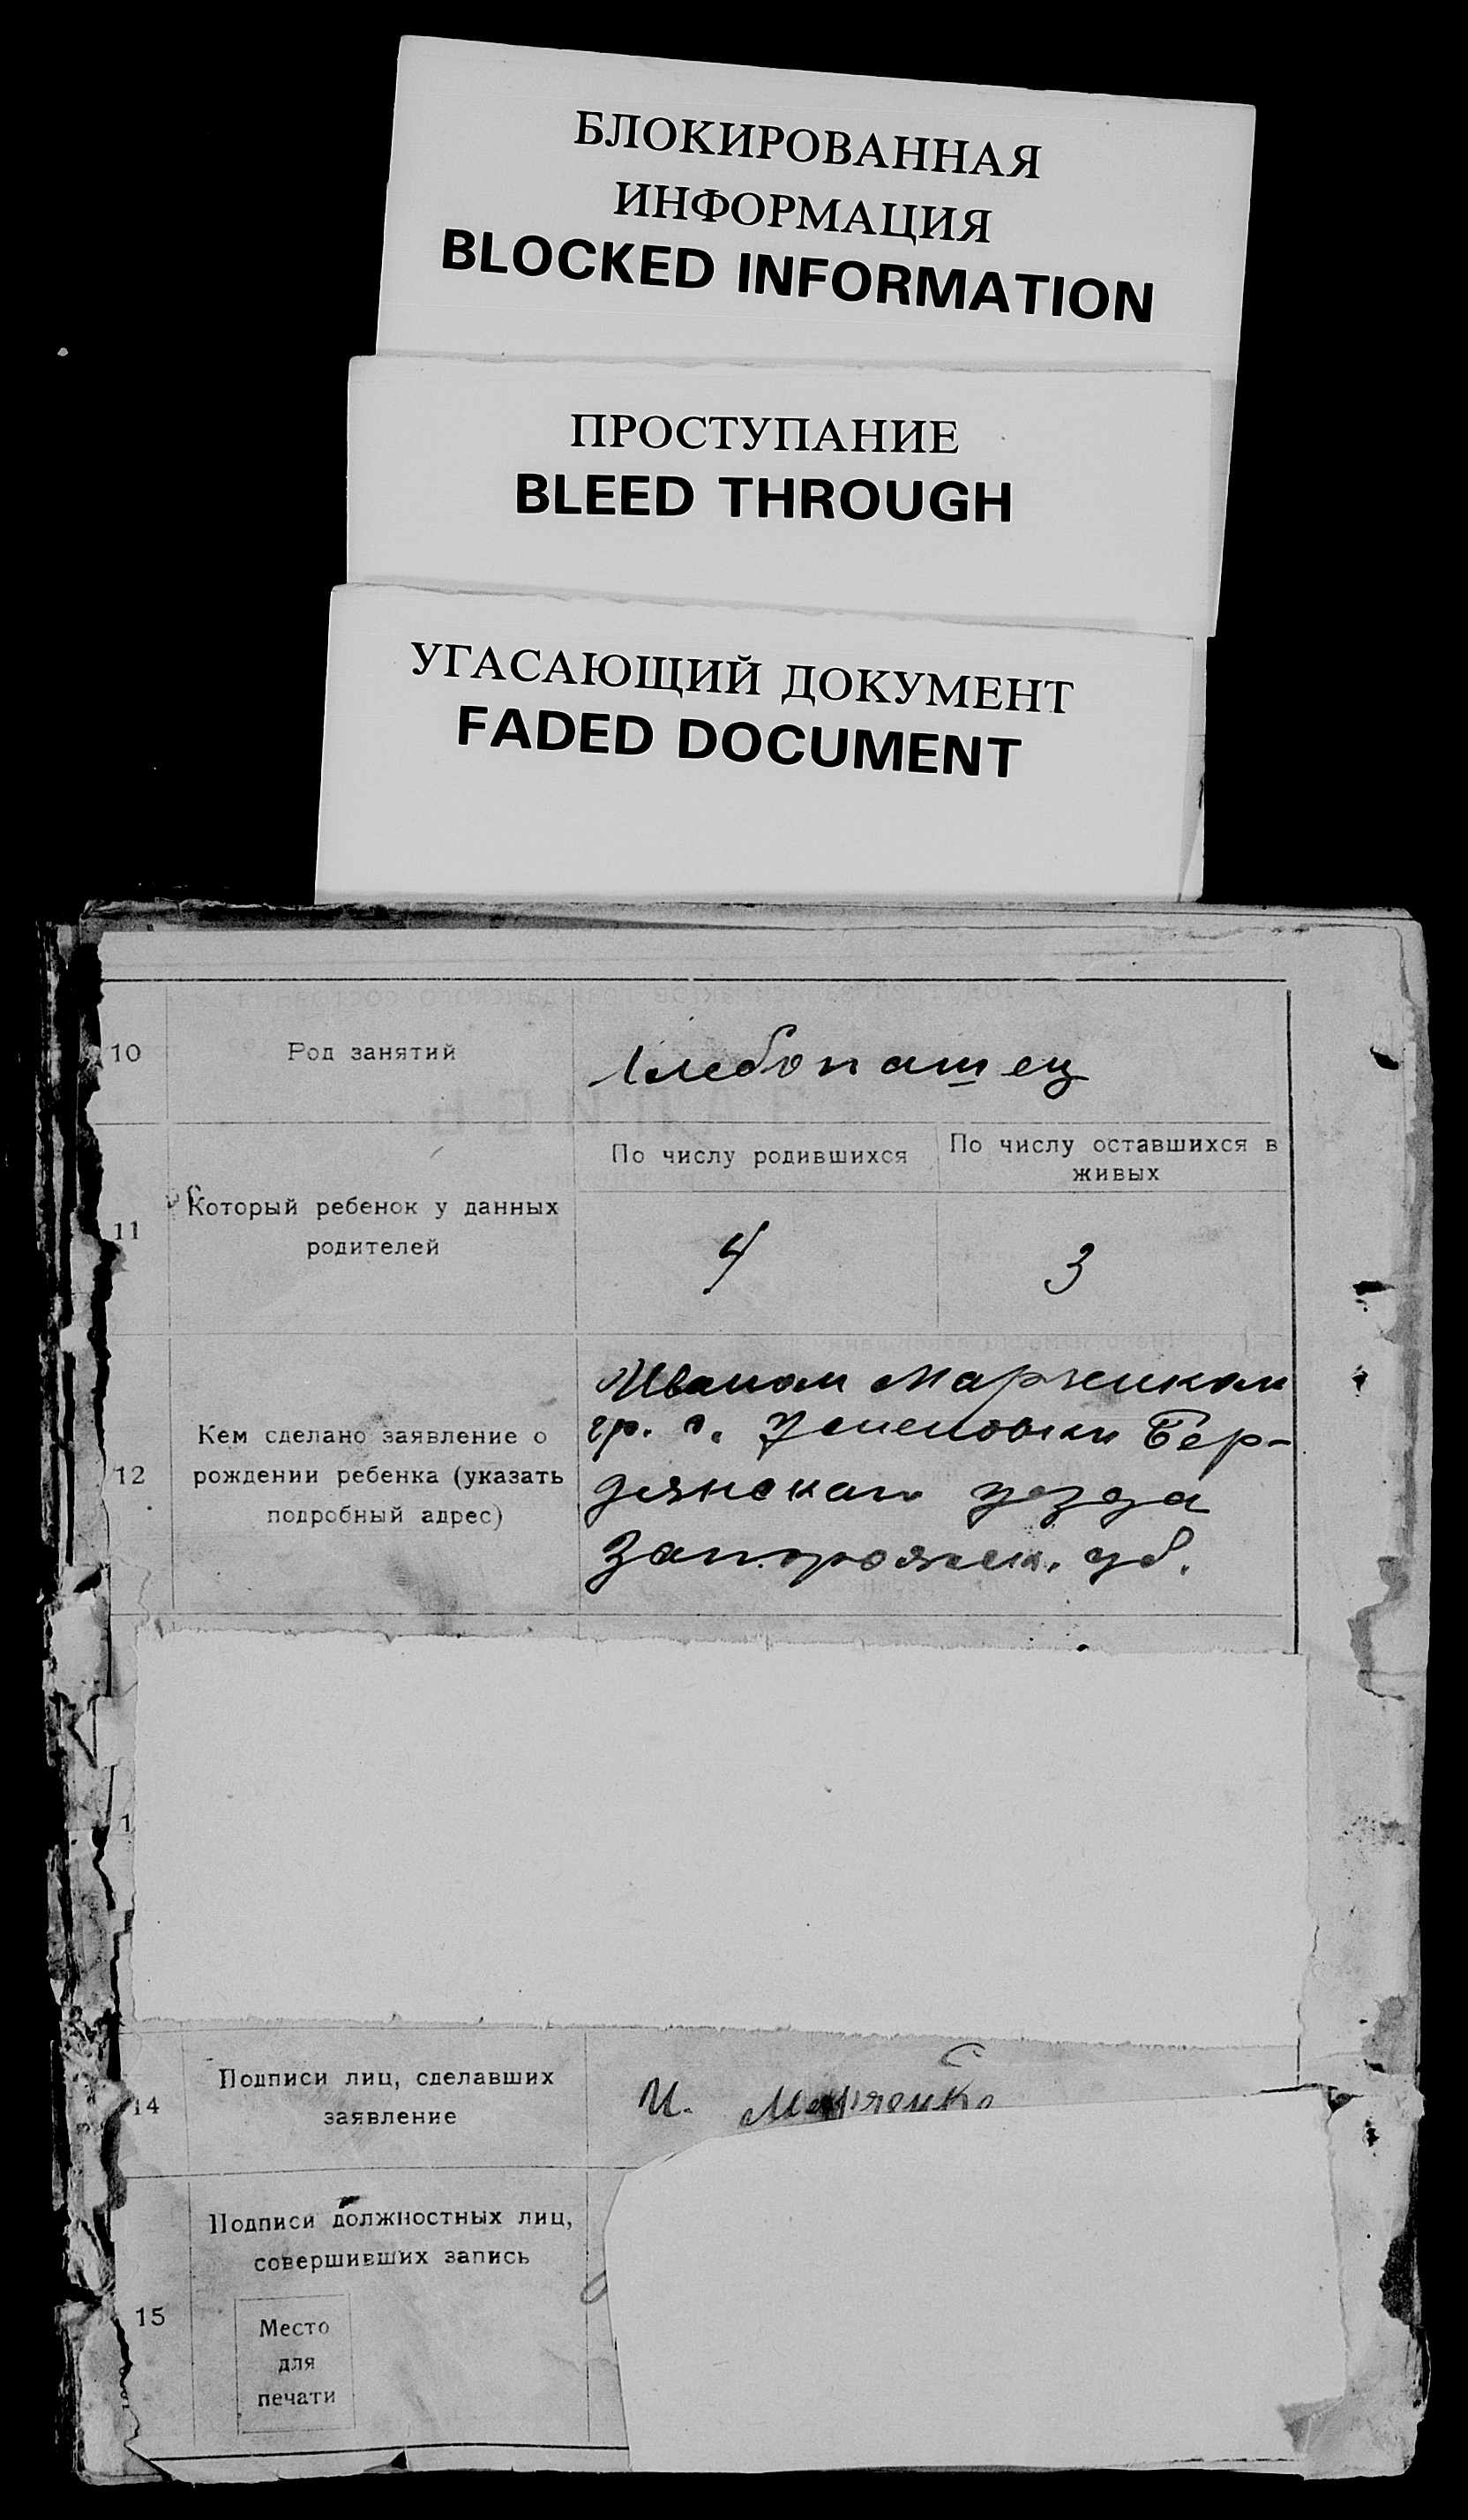 БЛОКИРОВАННАЯ
ИНФОРМАЦИЯ
BLOCKED INFORMATION
ПРОСТУПАНИЕ
BLEED THROUGH
УГАСАЮЩИЙ ДОКУМЕНТ
FADED DOCUMENT
10 Род занятий Хлебопашец
По числу родившихся По числу оставшихся в
живых
11 Который ребенок у данных
родителей
4 3
Иваном Марченком
гр. с. Бер-
12 Кем сделано заявление о
рождении ребенка (указать
подробный адрес)
дянскаго уезда
Запорожск. губ.
1
14 Подписи лиц, сделавших
заявление
И. Марченко
Подписи должностных лиц,
совершивших запись
15
Место
для
печати